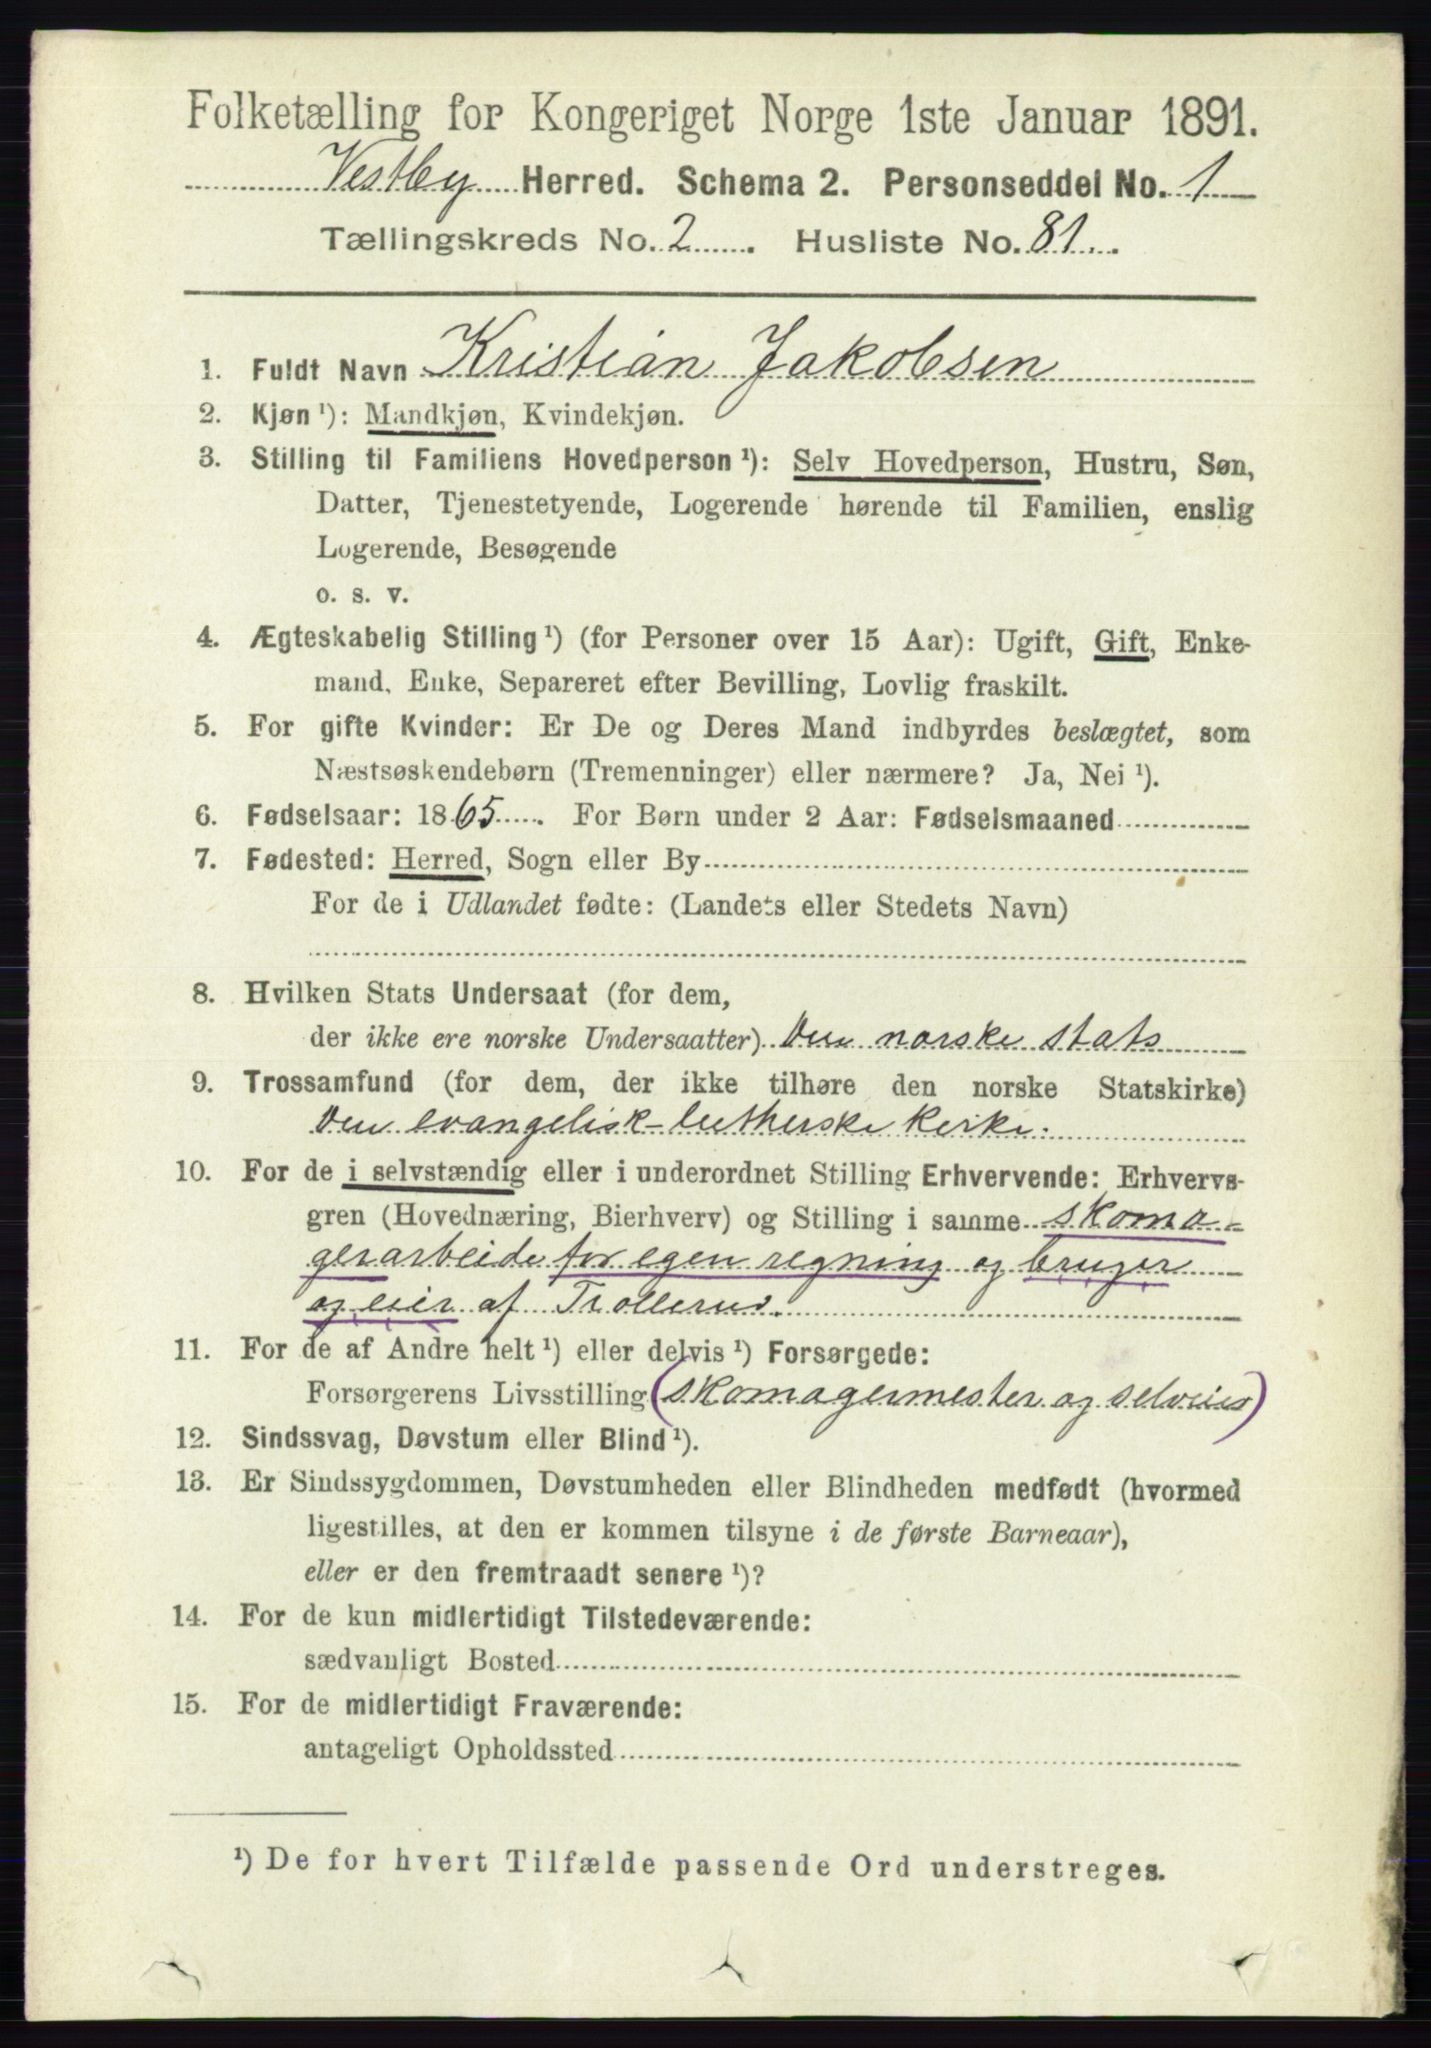 Folketælling for Kongeriget Norge 1ste Januar 1891.
Vestby Herred. Schema 2. Personseddel No. 1
Tællingskreds No. 2. Husliste No. 81.
1. Fuldt Navn Kristian Jakobsen
2. Kjøn ¹): Mandkjøn, Kvindekjøn.
3. Stilling til Familiens Hovedperson ¹): Selv Hovedperson, Hustru, Søn,
Datter, Tjenestetyende, Logerende hørende til Familien, enslig
Logerende, Besøgende
o. s. v.
4. Ægteskabelig Stilling ¹) (for Personer over 15 Aar): Ugift, Gift, Enke-
mand, Enke, Separeret efter Bevilling, Lovlig fraskilt.
5. For gifte Kvinder: Er De og Deres Mand indbyrdes beslægtet, som
Næstsøskendebørn (Tremenninger) eller nærmere? Ja, Nei ¹).
6. Fødselsaar: 1865. For Børn under 2 Aar: Fødselsmaaned
7. Fødested: Herred, Sogn eller By
For de i Udlandet fødte: (Landets eller Stedets Navn)
8. Hvilken Stats Undersaat (for dem,
der ikke ere norske Undersaatter) Den norske stats
9. Trossamfund (for dem, der ikke tilhøre den norske Statskirke)
Den evangelisk-lutherske kirke.
10. For de i selvstændig eller i underordnet Stilling Erhvervende: Erhvervs-
gren (Hovednæring, Bierhverv) og Stilling i samme skoma-
gerarbeide for egen regning og bruger
og eier af Trollerud.
11. For de af Andre helt ¹) eller delvis ¹) Forsørgede:
Forsørgerens Livsstilling (skomagermester og selveier)
12. Sindssvag, Døvstum eller Blind ¹).
13. Er Sindssygdommen, Døvstumheden eller Blindheden medfødt (hvormed
ligestilles, at den er kommen tilsyne i de første Barneaar),
eller er den fremtraadt senere ¹)?
14. For de kun midlertidigt Tilstedeværende:
sædvanligt Bosted
15. For de midlertidigt Fraværende:
antageligt Opholdssted
¹) De for hvert Tilfælde passende Ord understreges.